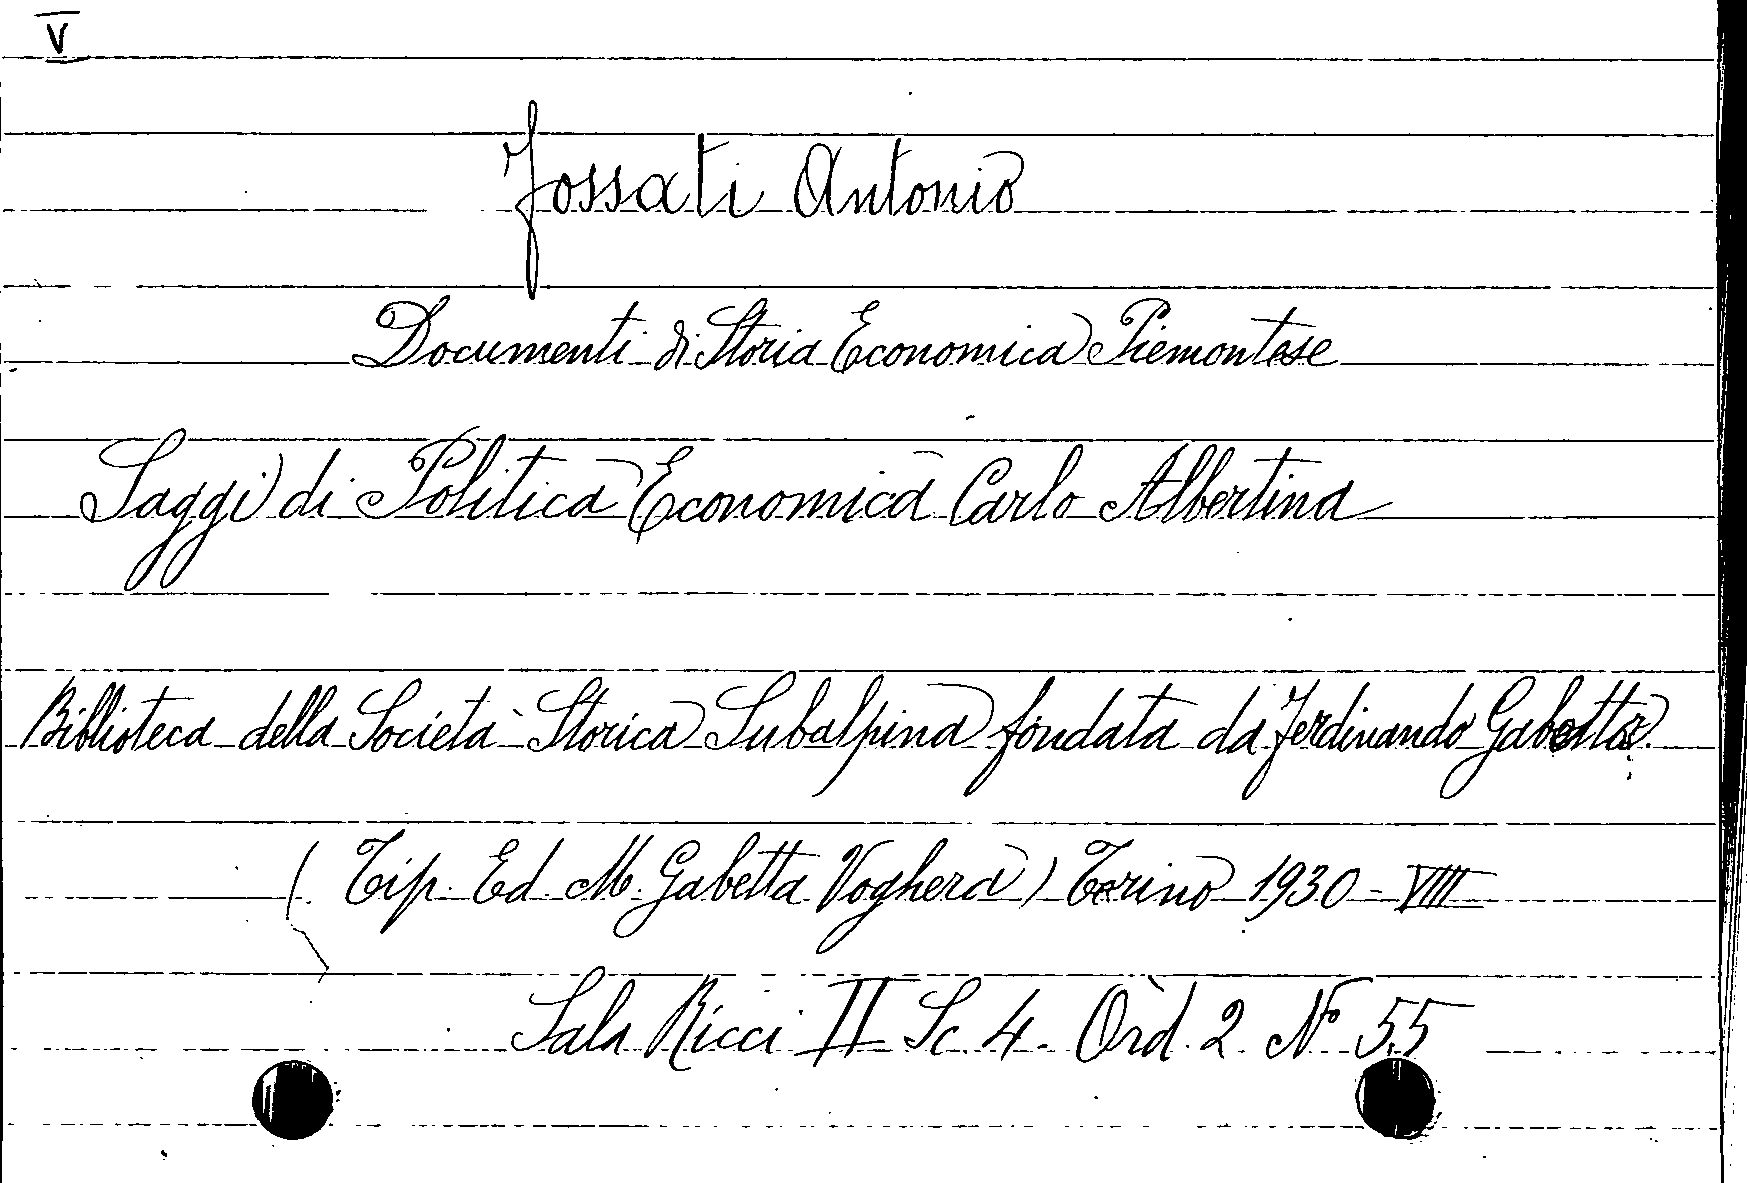 V
Fossati Antonio
Documenti di Storia Economica Piemontese
Saggi di Politica Economica Carlo Albertina
Biblioteca della Società Storica Subalpina fondata da Ferdinando Gabotto.
(Tip. Ed. M. Gabetta Voghera) Torino 1930 - VIII
Sala Ricci II Sc. 4. Ord. 2. N° 55